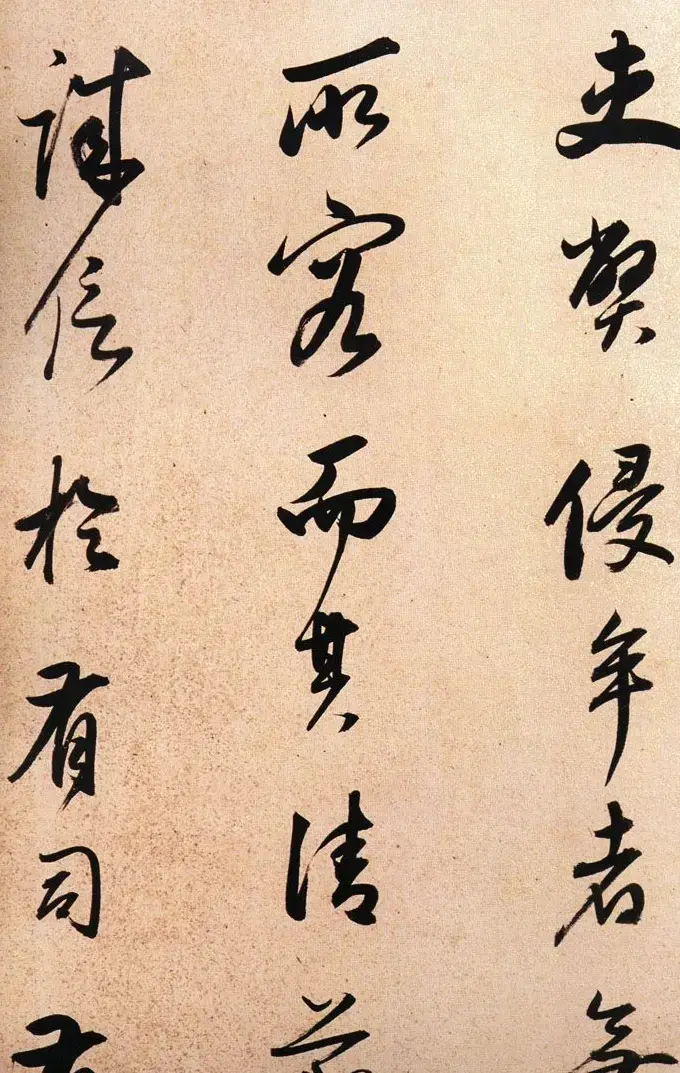 吏弊侵牟者
所容而其清
誠信於有司